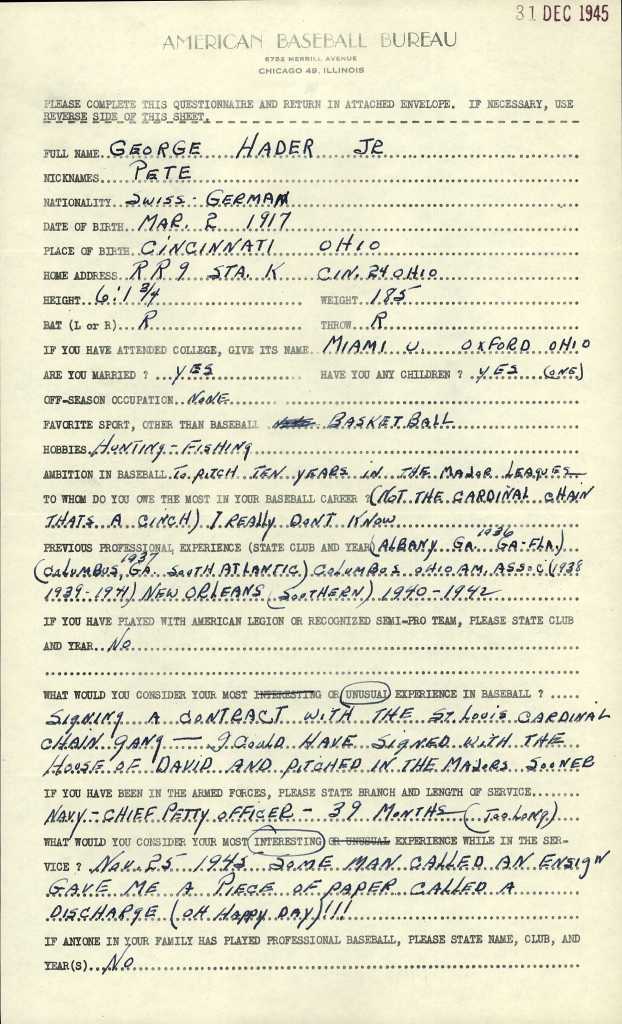 31 DEC 1945
AMERICAN BASEBALL BUREAU
6752 MERRILL AVENUE
CHICAGO 49, ILLINOIS
PLEASE COMPLETE THIS QUESTIONNAIRE AND RETURN IN ATTACHED ENVELOPE. IF NECESSARY, USE
REVERSE SIDE OF THIS SHEET.
FULL NAME GEORGE HADER JR
NICKNAMES PETE
NATIONALITY SWISS-GERMAN
DATE OF BIRTH MAR. 2 1917
PLACE OF BIRTH CINCINNATI OHIO
HOME ADDRESS RR 9 STA. K CIN. 24 OHIO
HEIGHT 6:1 3/4 WEIGHT 185
BAT (L or R) R THROW R
IF YOU HAVE ATTENDED COLLEGE, GIVE ITS NAME MIAMI U. OXFORD OHIO
ARE YOU MARRIED ? YES HAVE YOU ANY CHILDREN ? YES (ONE)
OFF-SEASON OCCUPATION NONE
FAVORITE SPORT, OTHER THAN BASEBALL BASKETBALL
HOBBIES HUNTING-FISHING
AMBITION IN BASEBALL TO PITCH TEN YEARS IN THE MAJOR LEAGUES
TO WHOM DO YOU OWE THE MOST IN YOUR BASEBALL CAREER ? (NOT THE CARDINAL CHAIN
THATS A CINCH) I REALLY DONT KNOW
PREVIOUS PROFESSIONAL EXPERIENCE (STATE CLUB AND YEAR) (ALBANY GA. 1936 GA-FLA.)
(COLUMBUS, GA. 1937 SOUTH ATLANTIC) COLUMBUS OHIO AM. ASSOC (1938
1939-1941) NEW ORLEANS (SOUTHERN) 1940-1942
IF YOU HAVE PLAYED WITH AMERICAN LEGION OR RECOGNIZED SEMI-PRO TEAM, PLEASE STATE CLUB
AND YEAR NO
WHAT WOULD YOU CONSIDER YOUR MOST INTERESTING OR UNUSUAL EXPERIENCE IN BASEBALL ?
SIGNING A CONTRACT WITH THE ST. LOUIS CARDINAL
CHAIN GANG — I COULD HAVE SIGNED WITH THE
HOUSE OF DAVID AND PITCHED IN THE MAJORS SOONER
IF YOU HAVE BEEN IN THE ARMED FORCES, PLEASE STATE BRANCH AND LENGTH OF SERVICE
NAVY-CHIEF PETTY OFFICER - 39 MONTHS (TOO LONG)
WHAT WOULD YOU CONSIDER YOUR MOST INTERESTING OR UNUSUAL EXPERIENCE WHILE IN THE SER-
VICE ? NOV. 25 1945 SOME MAN CALLED AN ENSIGN
GAVE ME A PIECE OF PAPER CALLED A
DISCHARGE (OH HAPPY DAY)!!!
IF ANYONE IN YOUR FAMILY HAS PLAYED PROFESSIONAL BASEBALL, PLEASE STATE NAME, CLUB, AND
YEAR(S) NO